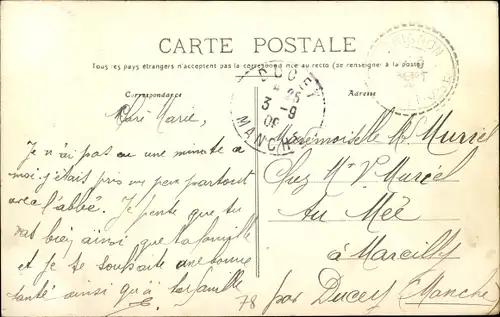 CARTE POSTALE
Tous les pays étrangers n'acceptent pas la correspondance au recto (se renseigner à la poste)
Correspondance
Adresse
DUCEY
25
3 - 9
06
MANCHE
Marie,
Je n'ai pas eu une minute a
moi j'étais pris un peu partout
avec l'abbé. Je pense que tu
vas bien ainsi que ta famille
et je te souhaite une bonne
santé ainsi qu'à ta famille
Mademoiselle M. Murcel
Chez Mr V. Murcel
Au Mée
à Marcilly
78 par Ducey (Manche)